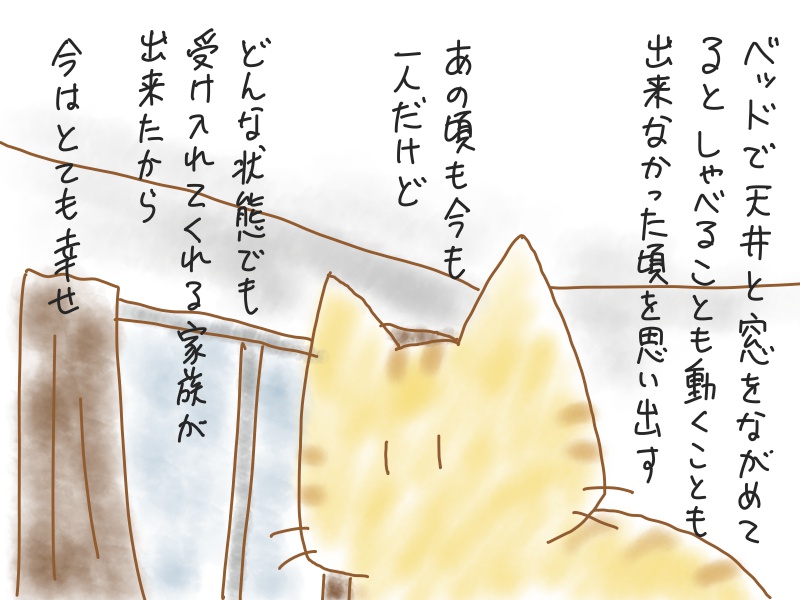 ベッドで天井と窓をながめて
ると しゃべることも動くことも
出来なかった頃を思い出す
あの頃も今も
一人だけど
どんな状態でも
受け入れてくれる家族が
出来たから
今はとても幸せ